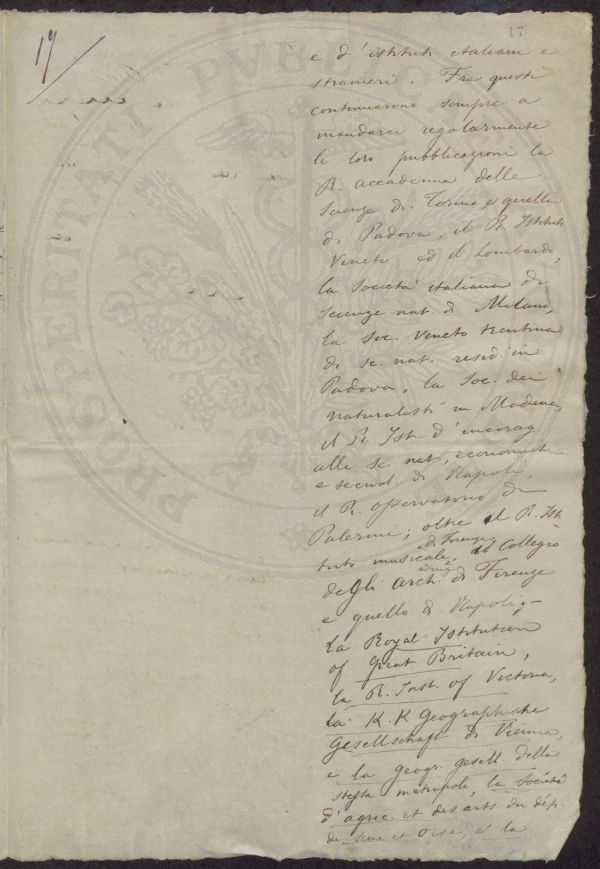 17
17
e d'istituti italiani e
stranieri. Fra questi
continuarono sempre a
mandarci regolarmente
le loro pubblicazioni la
R. accademia delle
Scienze di Torino e quella
di Padova, il R. Istituto
Veneto ed il Lombardo,
la Società italiana di
scienze nat. di Milano,
la Soc. Veneto trentina
di sc. nat. resid. in
Padova, la Soc. dei
naturalisti in Modena,
il R. Ist. d'incorag
alle sc. nat., economiche
e tecnol di Napoli,
il R. Osservatorio di
Palermo; oltre il R. Isti
tuto musicale, di Firenze il Collegio
degli Arch. di Firenze
e quello di Napoli; –
la Royal Istitution
of Great Britain,
la R. Inst. of Victoria,
la K. K Geographische
Gesellschaft di Vienna,
e la Geogr. Gesell. della
stessa metropoli, la Société
d'agric. et des arts du dép.
de Seine et Oise, e la
PROSPERITATI PVBLICAE